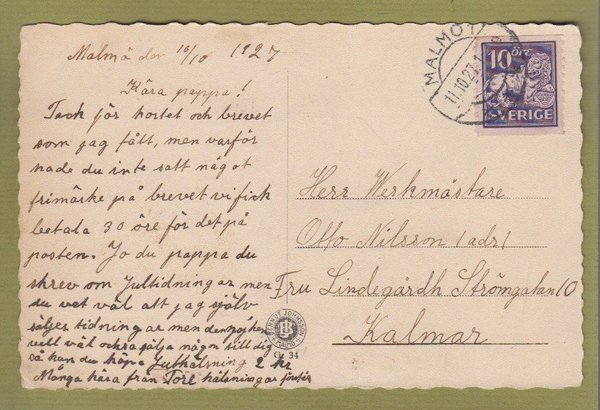 Malmö den 10/10 1927
Kära pappa!
Tack för kortet och brevet
som jag fått, men varför
hade du inte satt något
frimärke på brevet vi fick
betala 30 öre för det på
posten. Jo du pappa du
skrev om Jultidningar men
du vet väl att jag själv
säljer tidningar men
vill väl också sälja någon till dig
så kan du köpa Julhälsning 2 kr
Många kära från Tore hälsningar
MALMÖ 1
11.10.27
10 öre
SVERIGE
Herr Werkmästare
Otto Nilsson (adr)
Fru Lindegårdh Strömgatan 10
Kalmar
34